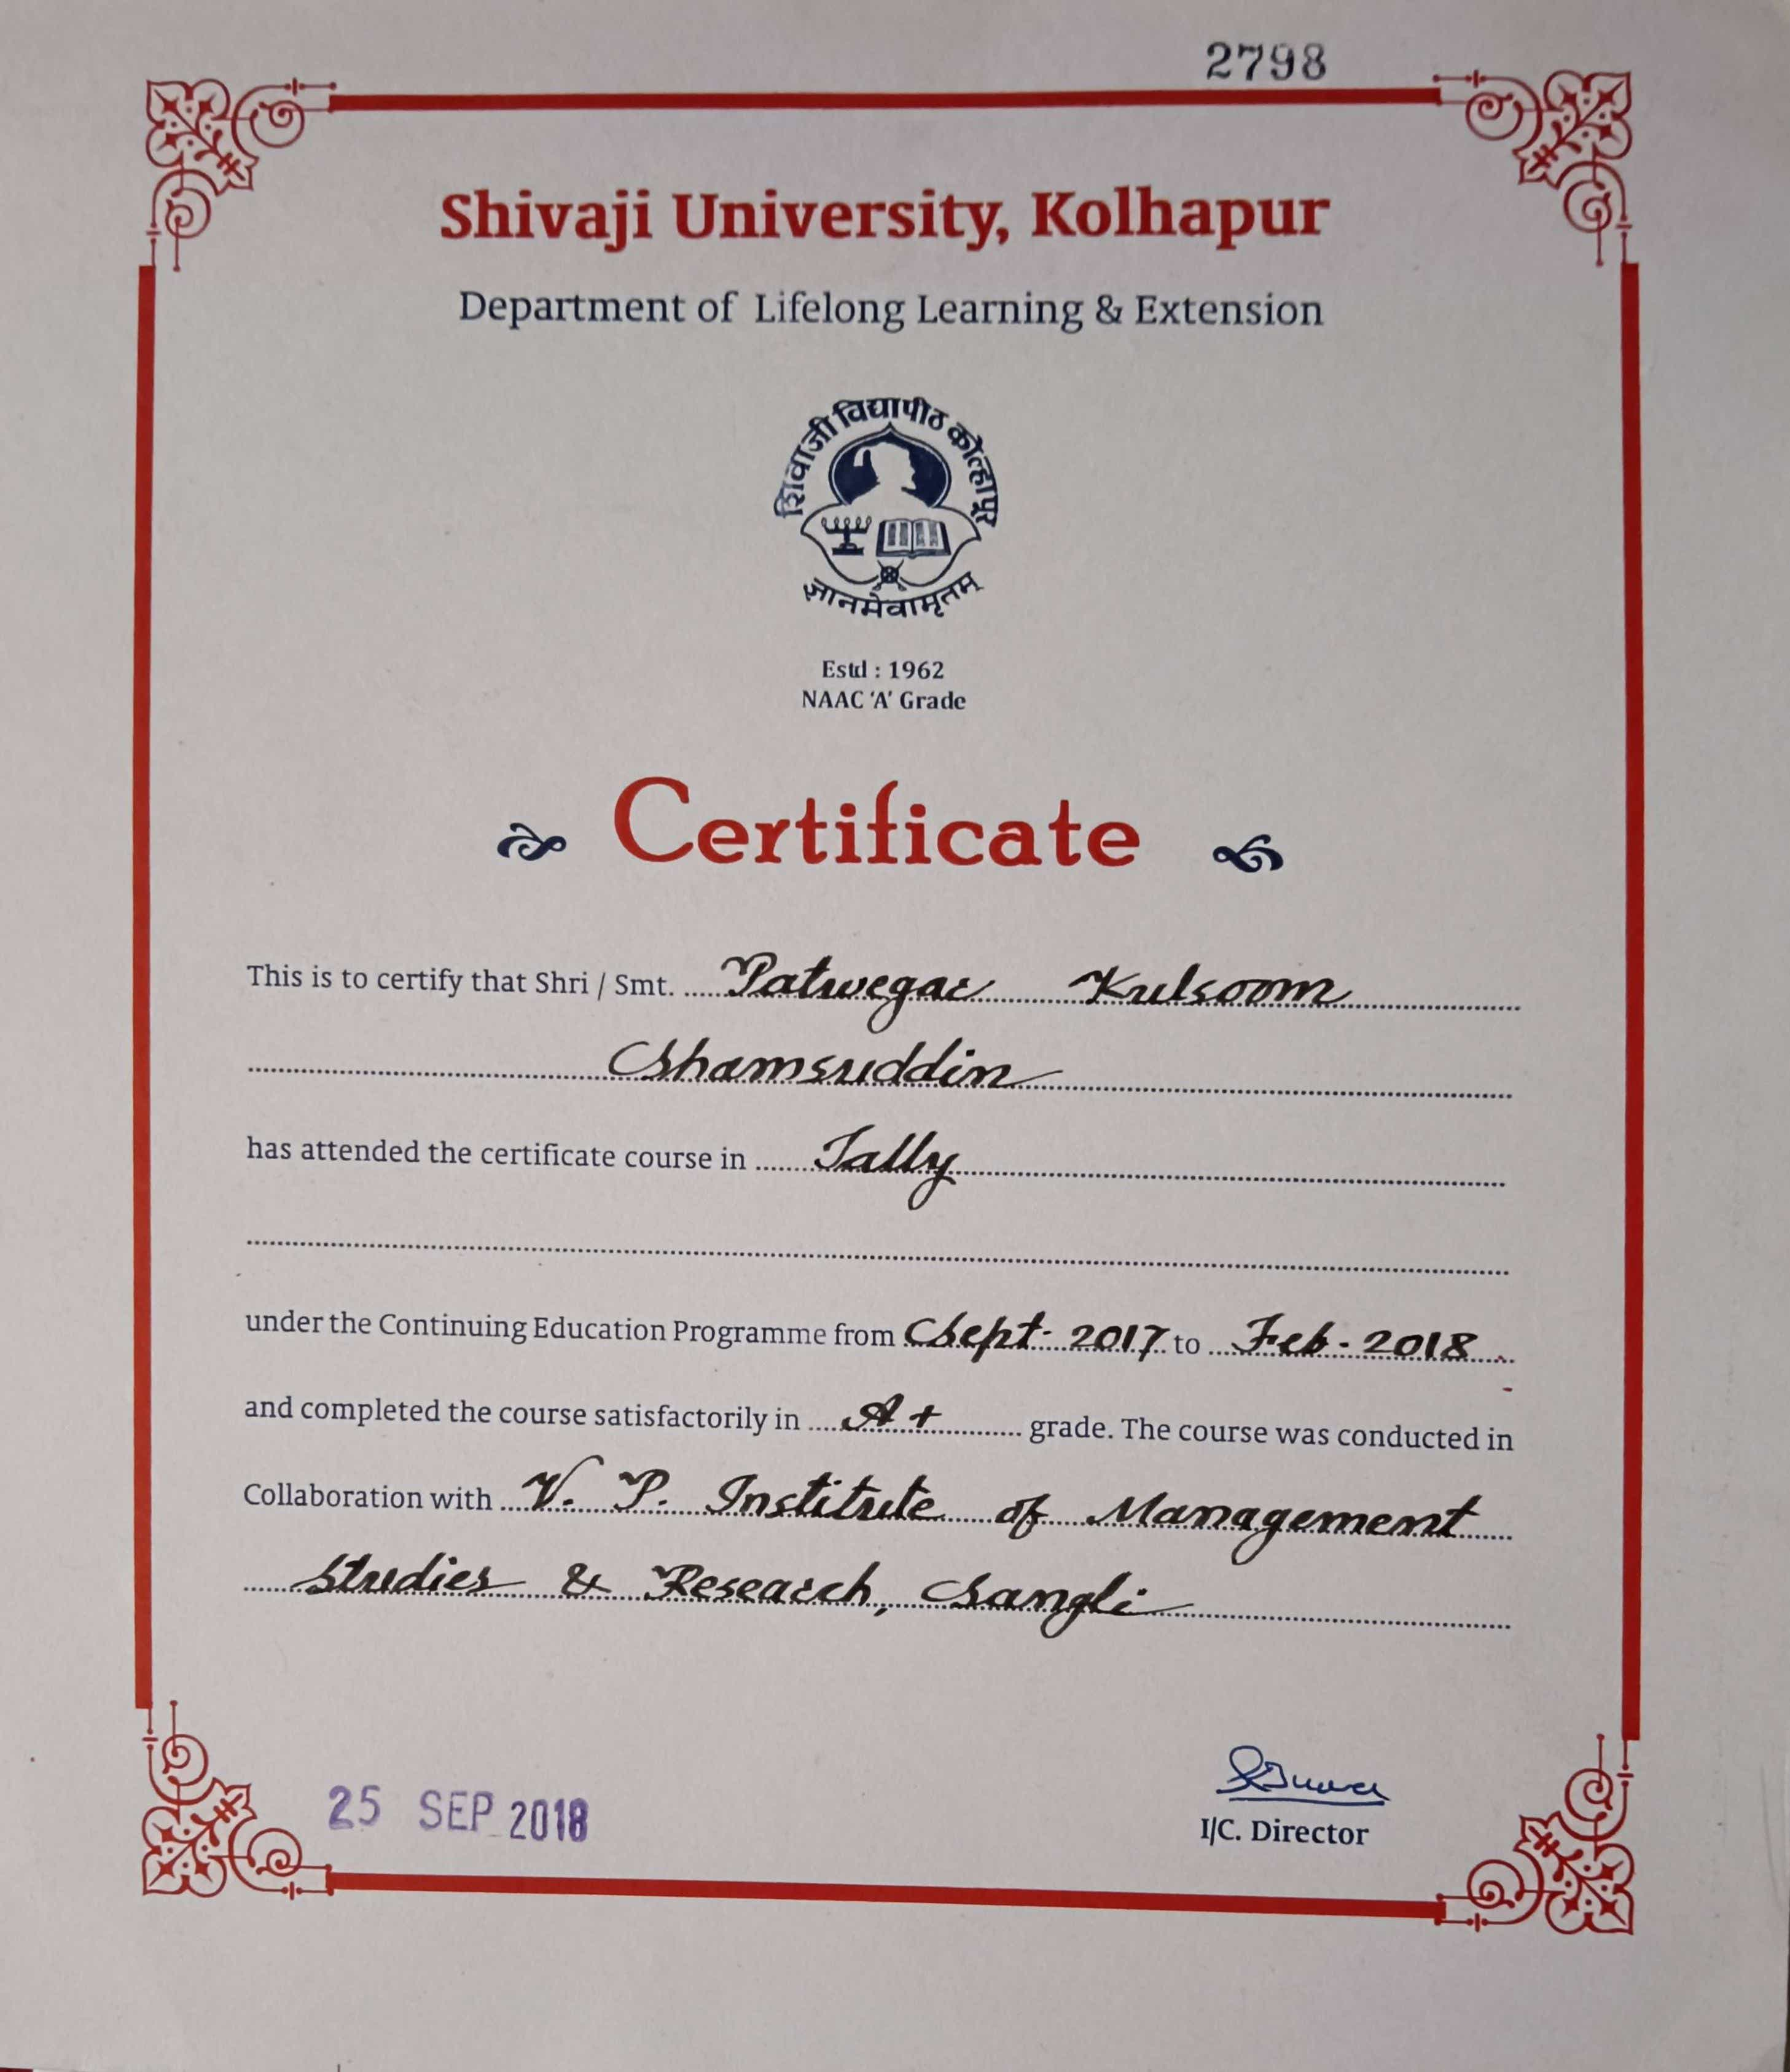 2798
Shivaji University, Kolhapur
Department of Lifelong Learning & Extension
शिवाजी विद्यापीठ कोल्हापूर
ज्ञानमेवामृतम्
Estd : 1962
NAAC 'A' Grade
Certificate
This is to certify that Shri / Smt. Patwegar Kulsoom
Shamsuddin
has attended the certificate course in Tally
under the Continuing Education Programme from Sept- 2017 to Feb - 2018
and completed the course satisfactorily in A+ grade. The course was conducted in
Collaboration with V. P. Institute of Management
Studies & Research, Sangli
25 SEP 2018
I/C. Director